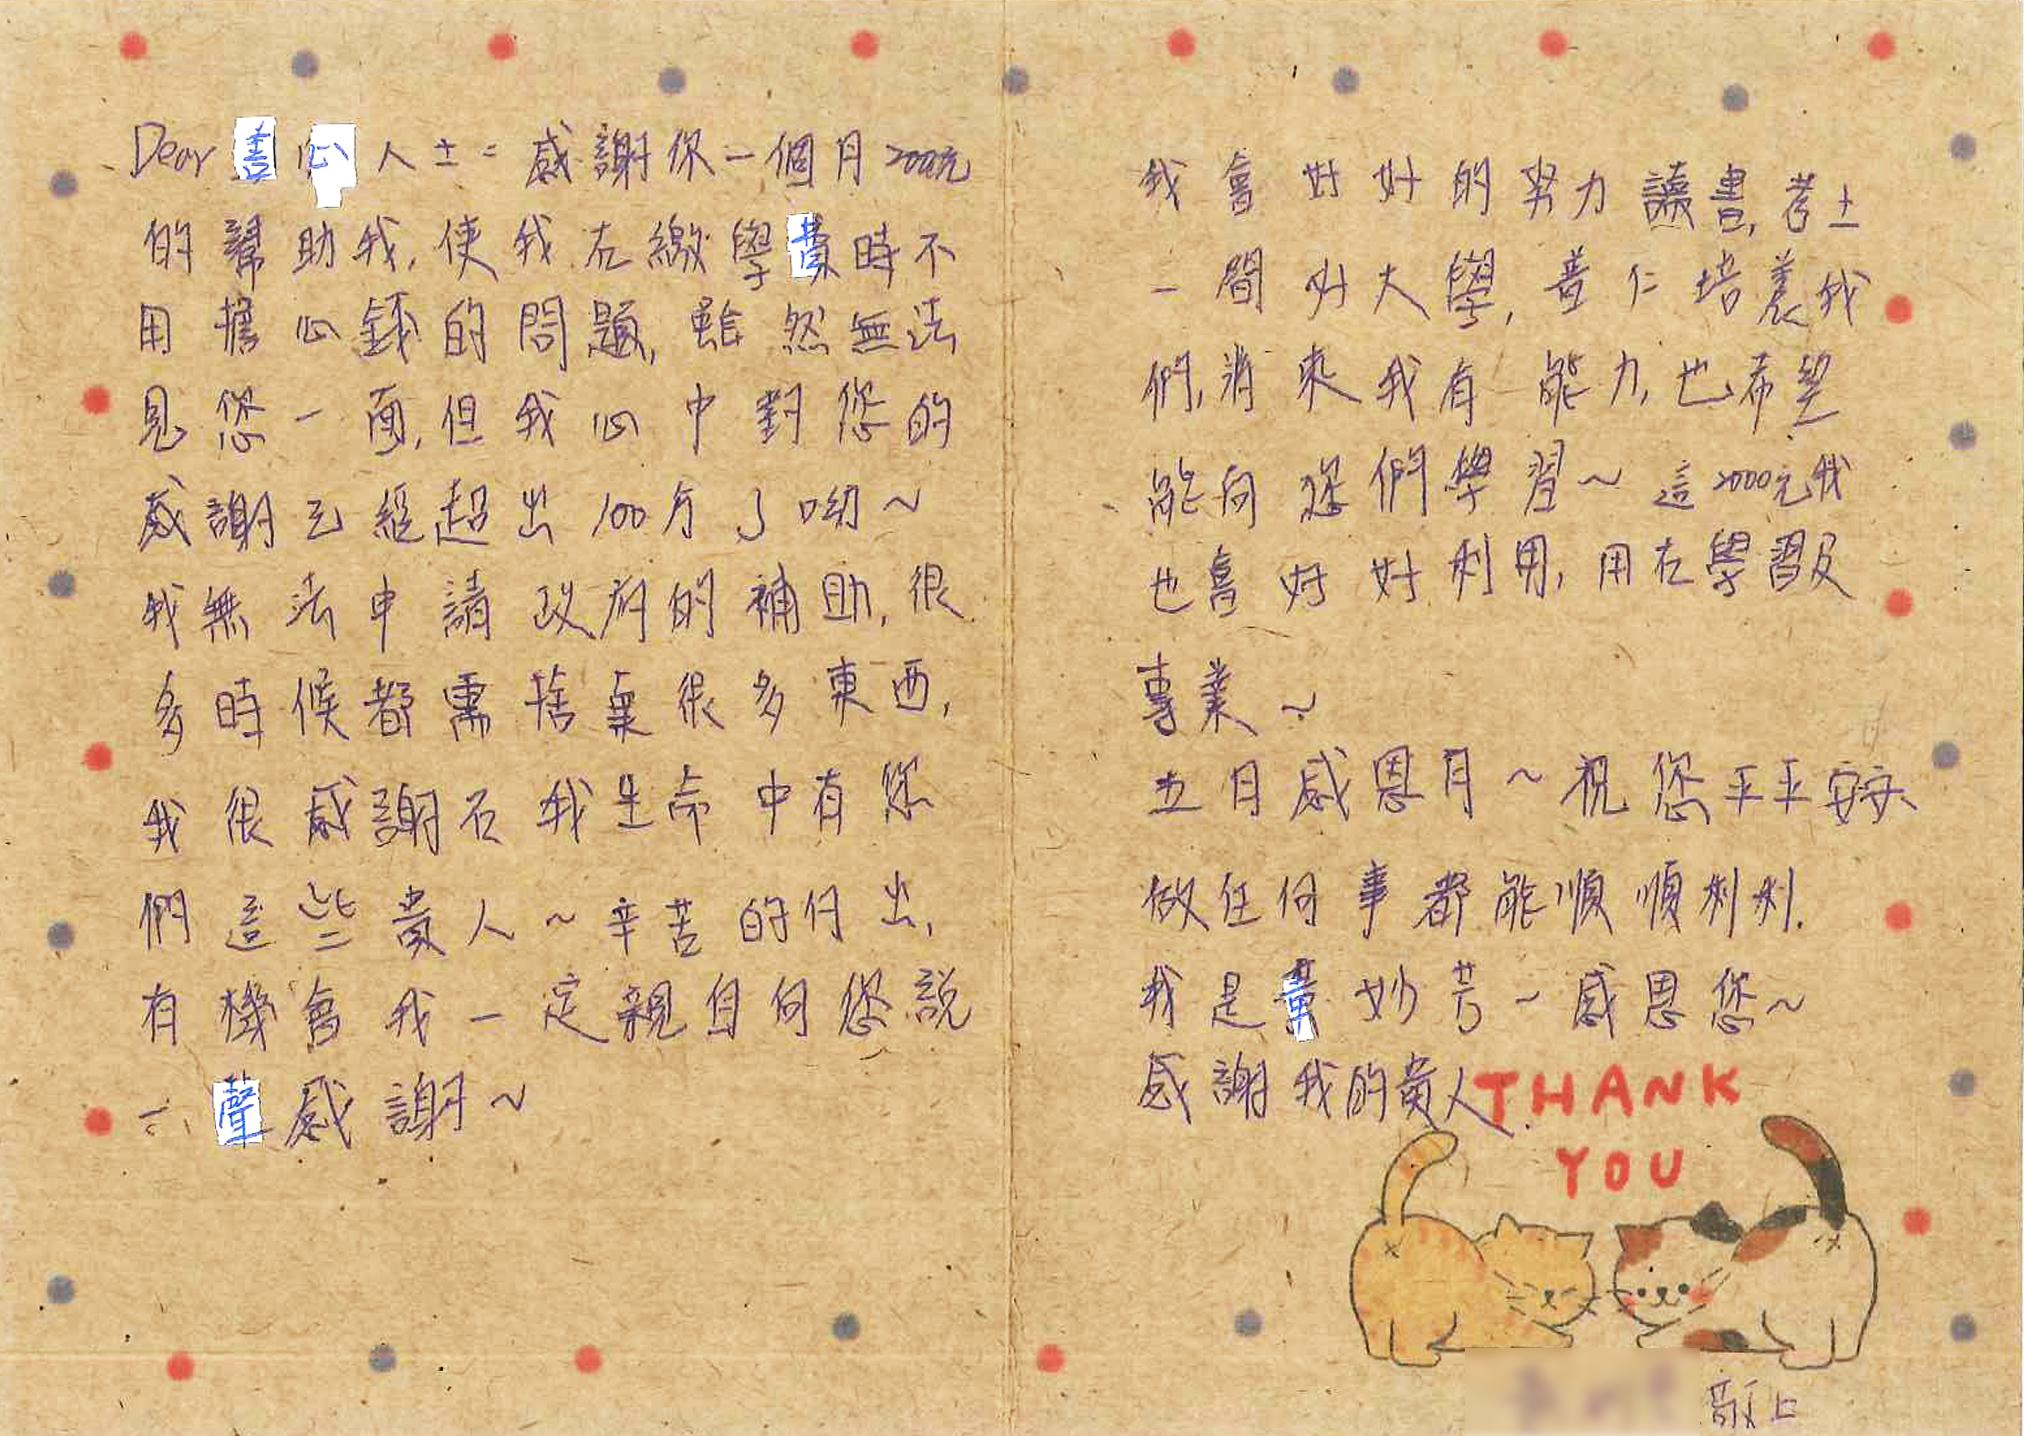 Dear 善心人士=感謝你一個月2000元
的幫助我,使我在繳學費時不
用擔心錢的問題,雖然無法
見您一面,但我心中對您的
感謝已經超出100分了呦~
我無法申請政府的補助,很
多時候都需捨棄很多東西,
我很感謝在我生命中有您
們這些貴人~辛苦的付出,
有機會我一定親自向您說
一聲感謝~
我會好好的努力讀書,考上
一間好大學,普仁培養我
們,將來我有能力,也希望
能向您們學習~這2000元我
也會好好利用,用在學習及
專業~
五月感恩月~祝您平平安安、
做任何事都能順順利利.
我是黃妙芳~感恩您~
感謝我的貴人
THANK
YOU
敬上